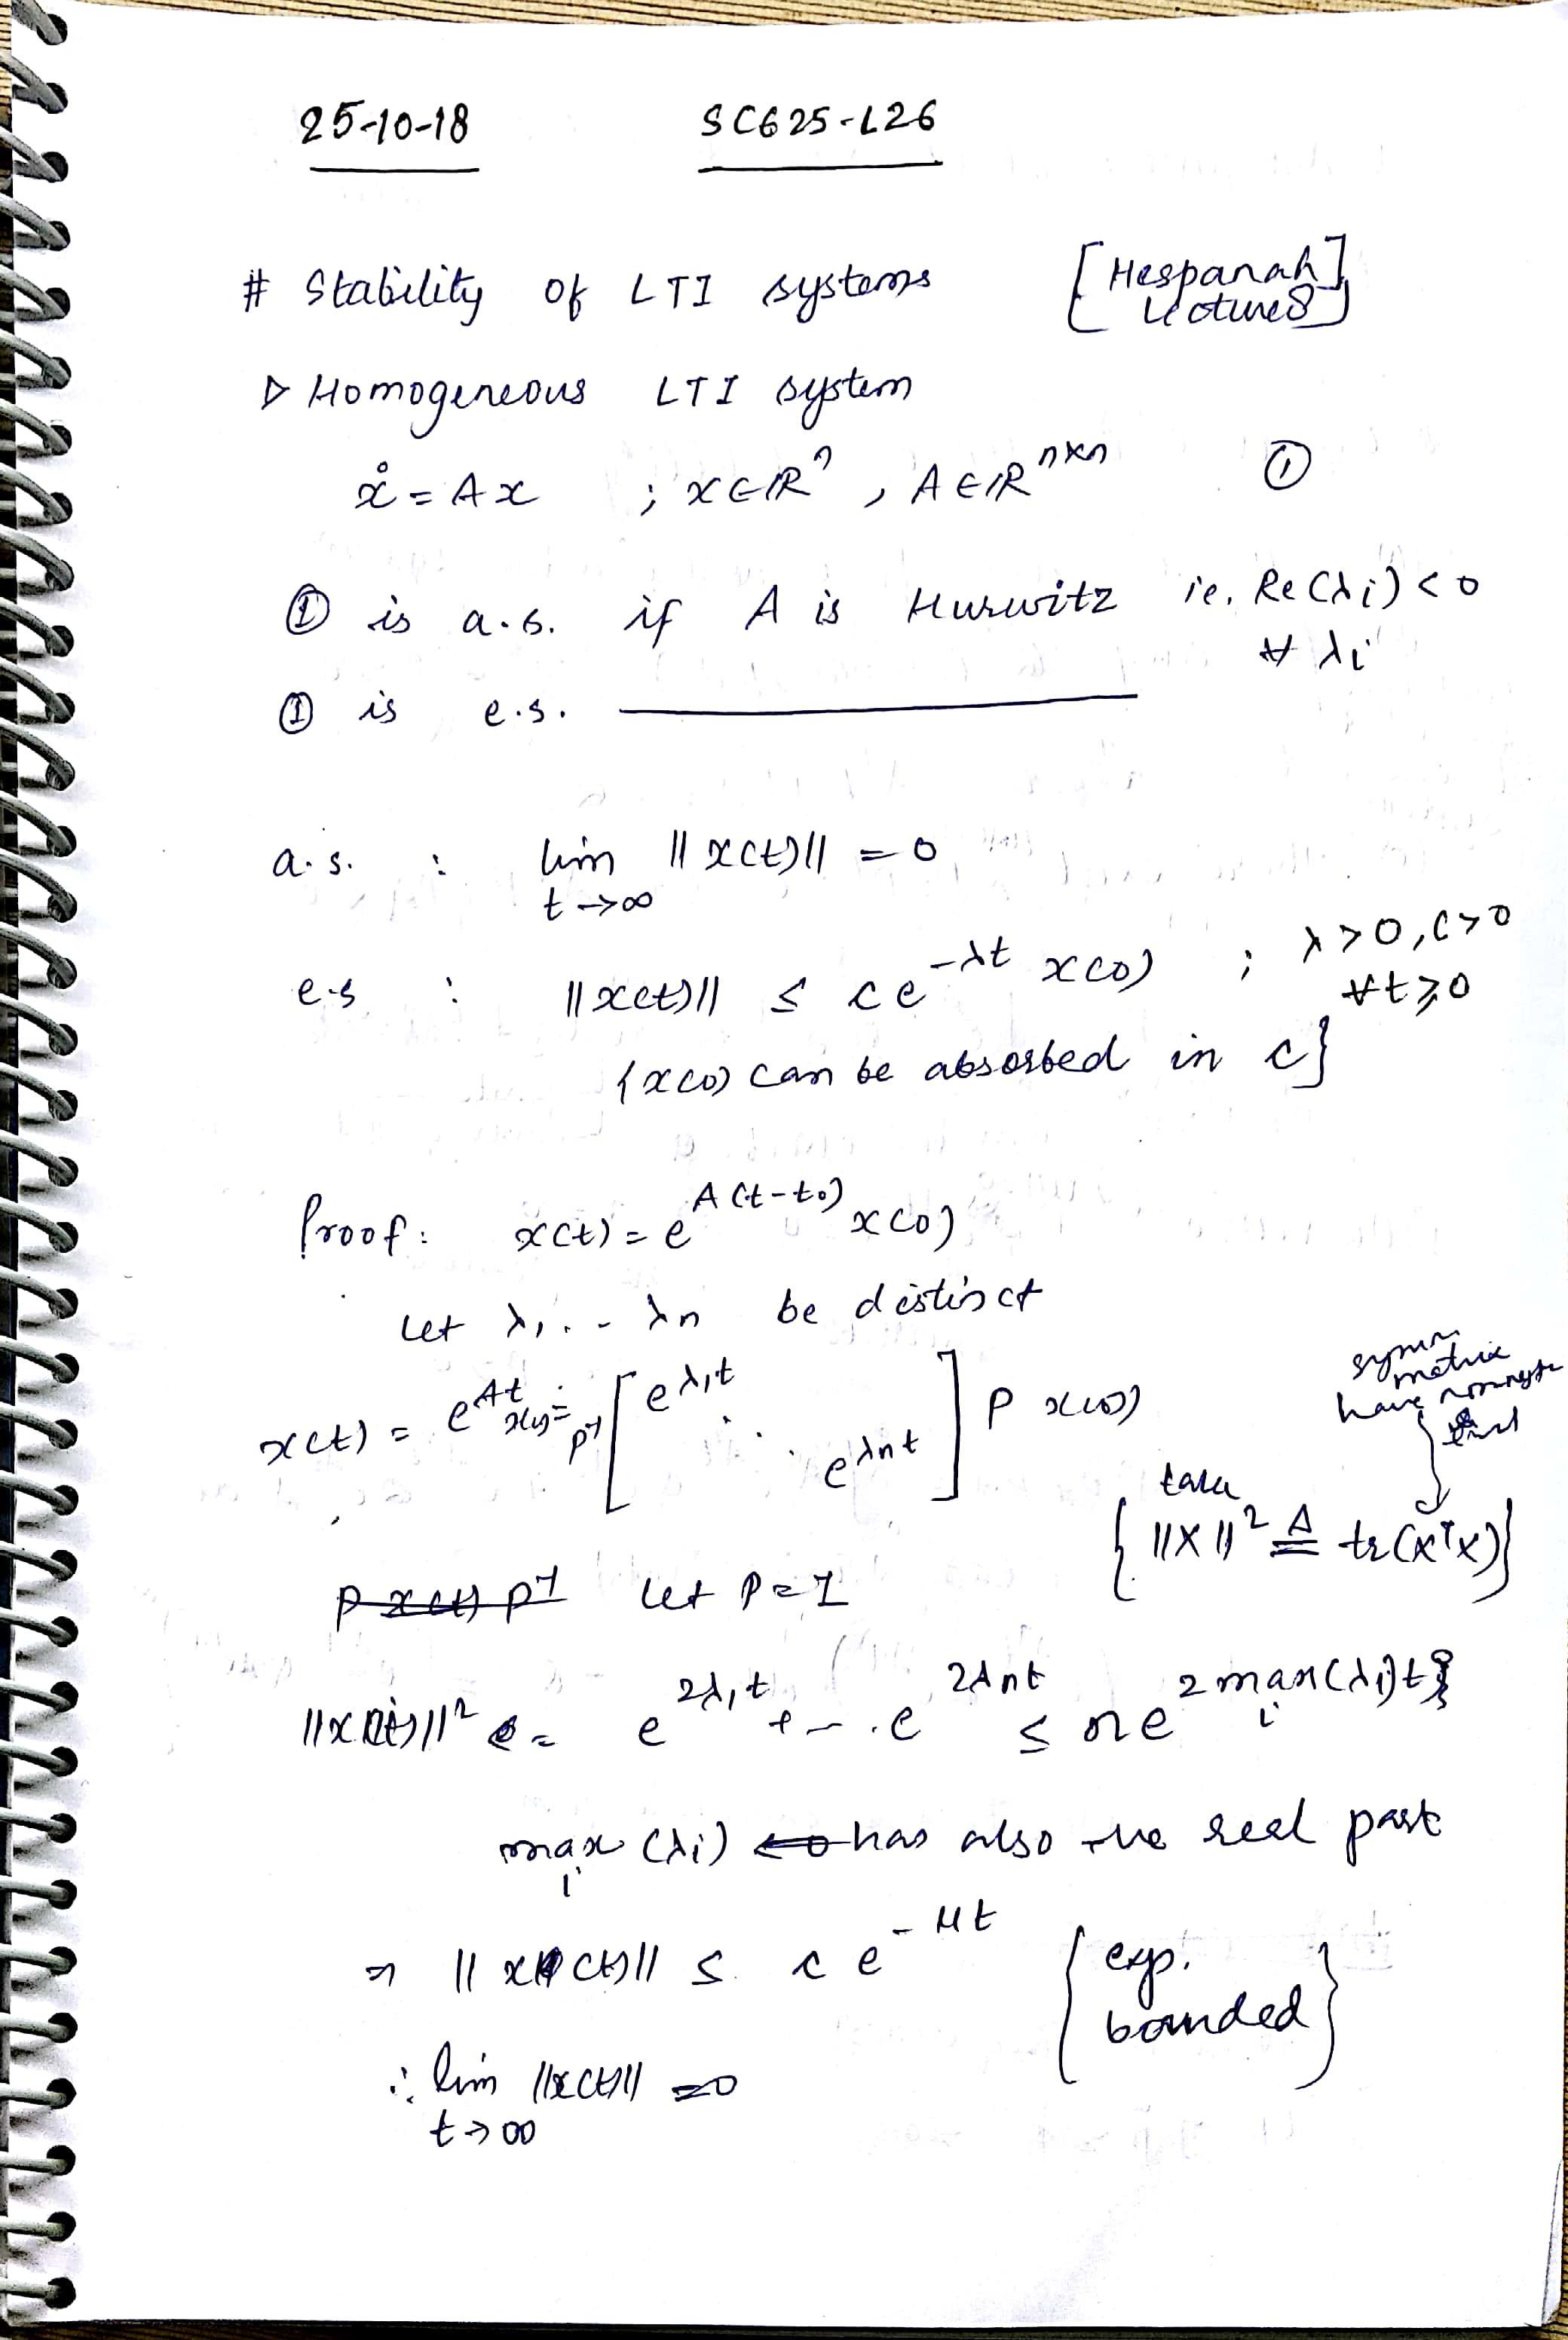 25-10-18 SC625-L26
# Stability of LTI systems [Hespanah Lecture 8]
▷ Homogeneous LTI system
ẋ = Ax ; x∈ℝⁿ, A∈ℝⁿˣⁿ ①
① is a.s. if A is Hurwitz ie. Re(λi) < 0
∀ λi
① is e.s. ————
a.s. : lim ||x(t)|| = 0
t→∞
e.s : ||x(t)|| ≤ ce^{-λt} x(0) ; λ>0, c>0
∀t≥0
{x(0) can be absorbed in c}
Proof: x(t) = e^{A(t-t₀)} x(0)
Let λ₁...λn be distinct
symm matrix have
x(t) = e^{At} x(0) = P⁻¹ [e^{λ₁t} ⋱ e^{λnt}] P x(0)
take
{||X||² ≜ tr(XᵀX)}
P x(t) P⁻¹ Let P=I
||x(t)||² = e^{2λ₁t} + ... e^{2λnt} ≤ n e^{2 max(λi)t}
i
max (λi) <0 has also -ve real part
i
⇒ ||x(t)|| ≤ c e^{-μt} {exp. bounded}
∴ lim ||x(t)|| = 0
t→∞